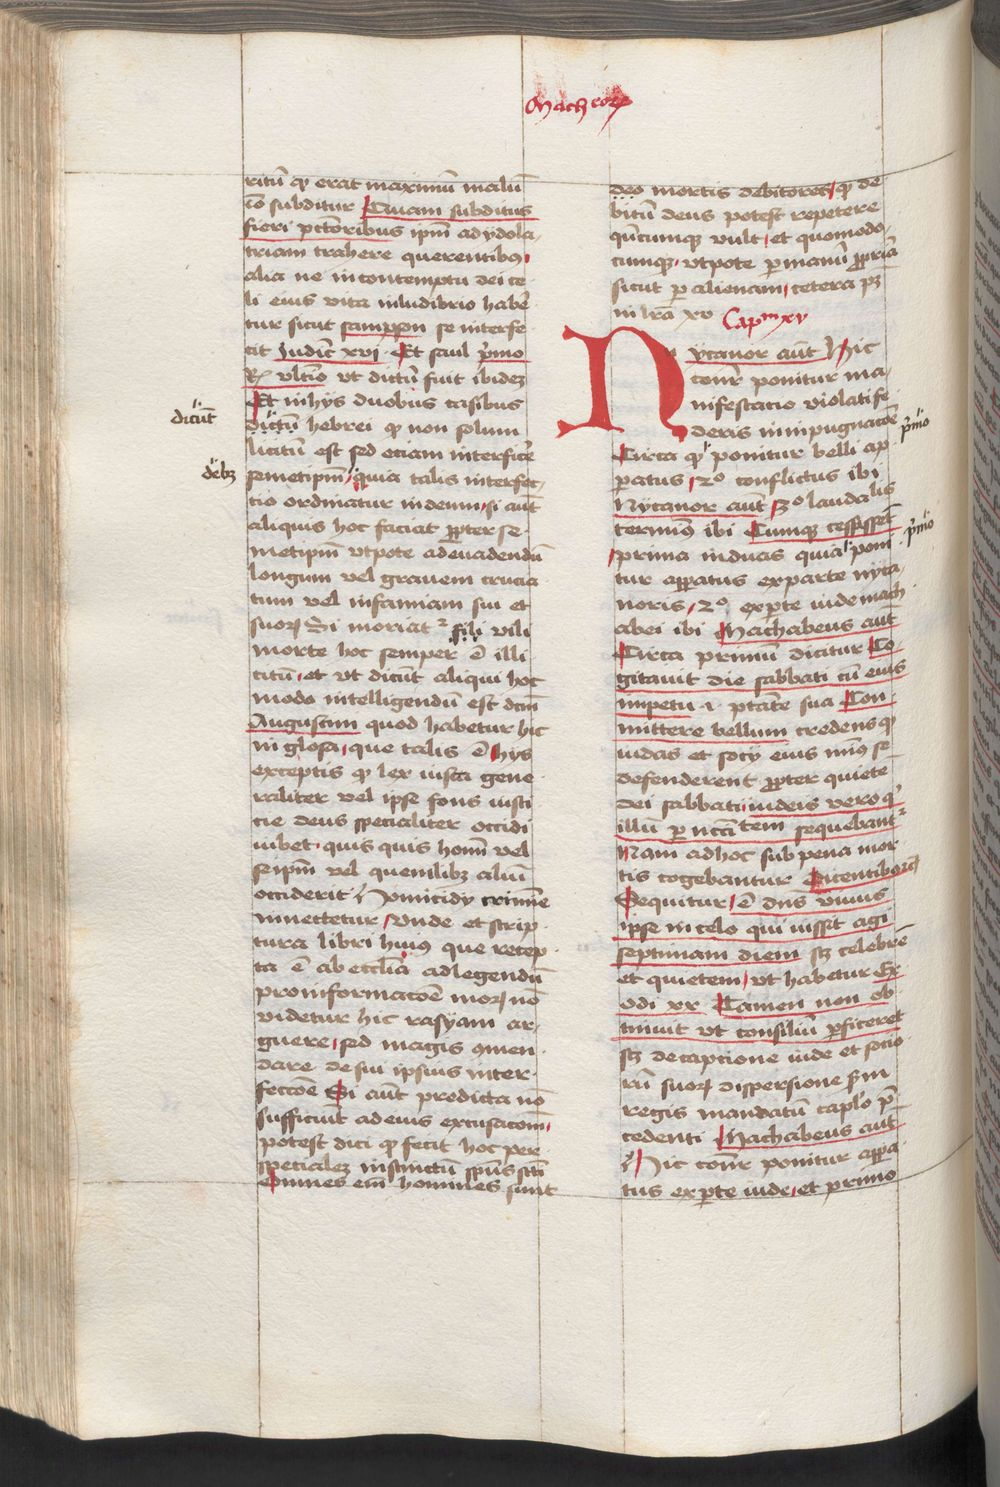 Macheor͛
ritū qͥ erat maximū malū
iō subditur Quam subditus
fieri pctͦoribus ipm̄ ad ydola
triam trahere querentibus
alia ne in contemptu dei ce
li eius vita in ludibrio habē
tur sicut sampson se interfe
cit Iudic̄ xvi Et saul pͥmo
Rͤ vltīo vt dictū fuit ibidez
Et in hys duobus casibus
dictū hebrei qͥ non solum
licitū est sed eciam interficē
semetipm̄ quia talis interfec
tio ordinatur in deum si aūt
aliquis hoc faciat ꝓpter se
metipm̄ vtpote ad euadendū
longum vel grauem crucia
tum vel infamiam sui et
suoꝝ Si moriatᷣ sili vili
morte hoc semper ē illi
citū et vt dicūt aliqui hoc
modo intelligendū est dcm̄
Augustim quod habetur hic
in glosa que talis ē hys
exceptis qͥ lex iusta gene
raliter vel ipse fons iusti
cie deus specialiter occidi
iubet quis quis homīe vel
seipm̄ vel quemlibꝫ aliū
occiderit homicidy crimīe
innectetur Vnde et scrip
tura libri huiꝰ que recep
ta ē ab ecclīa ad legendū
pro informacōe moꝝ nō
videtur hic rasyam ar
guere sed magis ꝯmen
dare de sui ipsius inter
feccōe Si aūt predicta nō
sufficiūt ad eius excusacom̄
potest dici qͥ fecit hoc per
specialeꝫ instinctū spūs scī
Omnes em̄ homines sunt
dicūt
debꝫ
deo mortis debitores qͥ de
bitū deus potest repetere
qn̄cumqꝫ vult et quomodo
cumqꝫ vtpote ꝑ manū ꝓpriā
sicut ꝑ alienam cetera pꝫ
in lrā xv Capᵐ xv
Nycanor aūt Hic
conᷣr ponitur ma
nifestacio violati fe
deris in inpugnacōe
Circa qͥ ponitur belli ap
ꝑatus 2º conflictus ibi
Nycanor aūt 3º laudalis
terminꝰ ibi Cumqꝫ cessisset
prima in duas quia poni
tur apꝑatus ex parte nyca
noris 2º exꝑte iude mach
abei ibi Machabeus aūt
Circa primū dicitur Co
gitauit die sabbati cū eius
impetu .i. ptāte sua Con
mittere bellum credens qͥ
iudas et socy eius minꝰ se
defenderent ꝓpter quiete
dei sabbati iudeis vero qͥ
illū ꝑ nccītem sequebantᷣ
Nam ad hoc sub pena mor
tis cogebantur Dicentibus
Sequitur ē dn̄s viuus
ipse in celo qui iussit agi
septimam diem sꝫ celebrē
et quietem vt habetur Ex
odi xx Tamen non ob
tinuit vt consiliū ꝑficeret
sꝫ de captione iude et socio
rū suoꝝ dispersione sm̄
regis mandatū caplo pͤ
cedenti Machabeus aūt
Hic conᷣr ponitur appa
tus exꝑte iude et primo
pͥmo
pͥmo